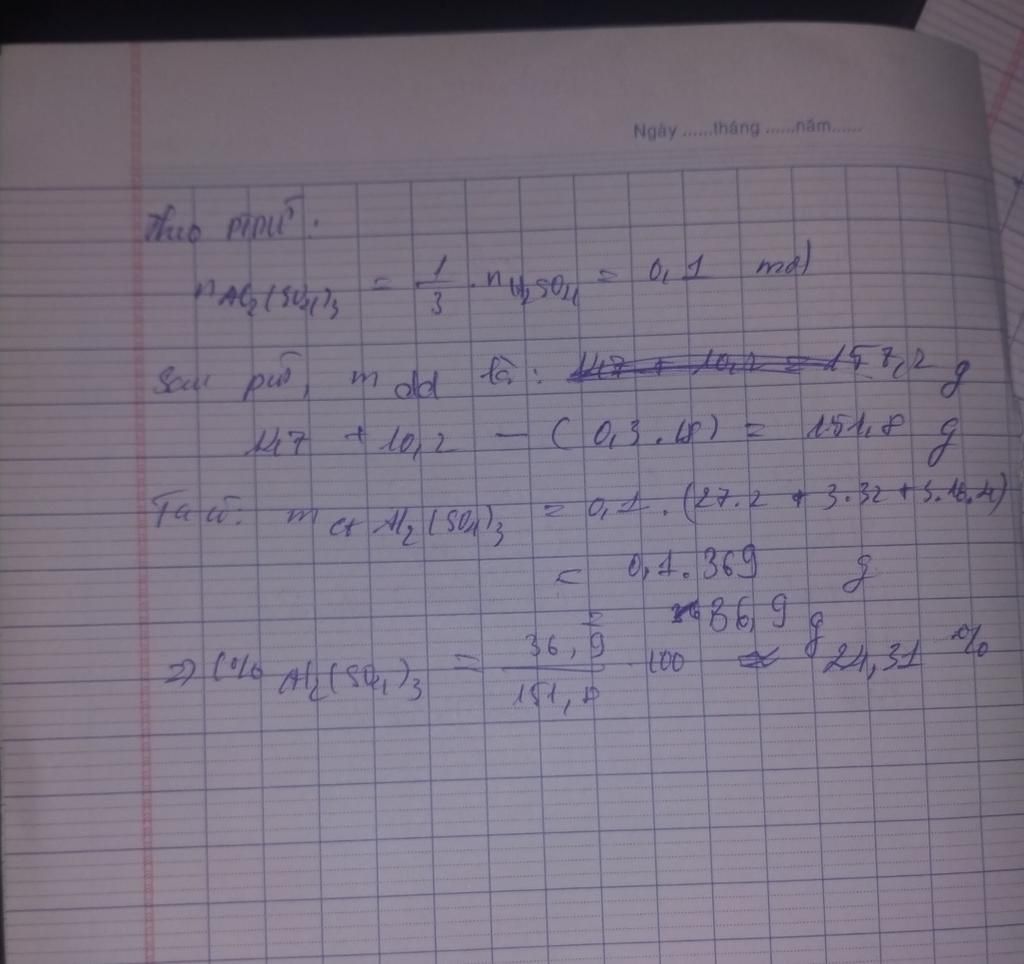 Ngày ......tháng ......năm......
Theo PTPƯ:
nAl₂(SO₄)₃ = 1/3 . nH₂SO₄ = 0,1 mol
Sau pư, m dd là: 157,2 g
147 + 10,2 - (0,3.18) = 151,8 g
Ta có: m ct Al₂(SO₄)₃ = 0,1.(27.2 + 3.32 + 3.16.4)
= 0,1.369 g
= 36,9 g
=> C% Al₂(SO₄)₃ = 36,9/151,8 .100 ≈ 24,31 %